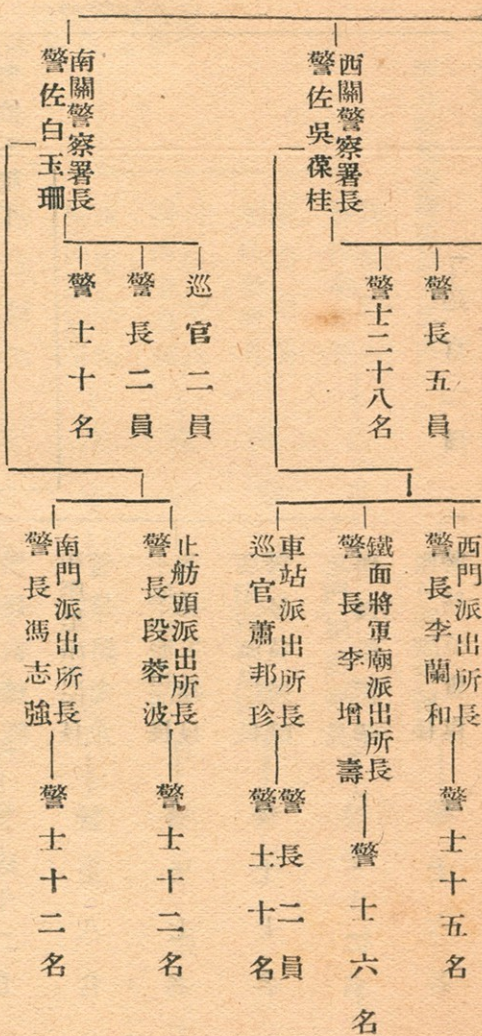 西關警察署長
警佐吳葆桂
警長五員
警士二十八名
西門派出所長
警長李蘭和
警士十五名
鐵面將軍廟派出所長
警長李增壽
警士六名
車站派出所長
巡官蕭邦珍
警長二員
警士十名
南關警察署長
警佐白玉珊
巡官二員
警長二員
警士十名
止舫頭派出所長
警長段蓉波
警士十二名
南門派出所長
警長馮志強
警士十二名